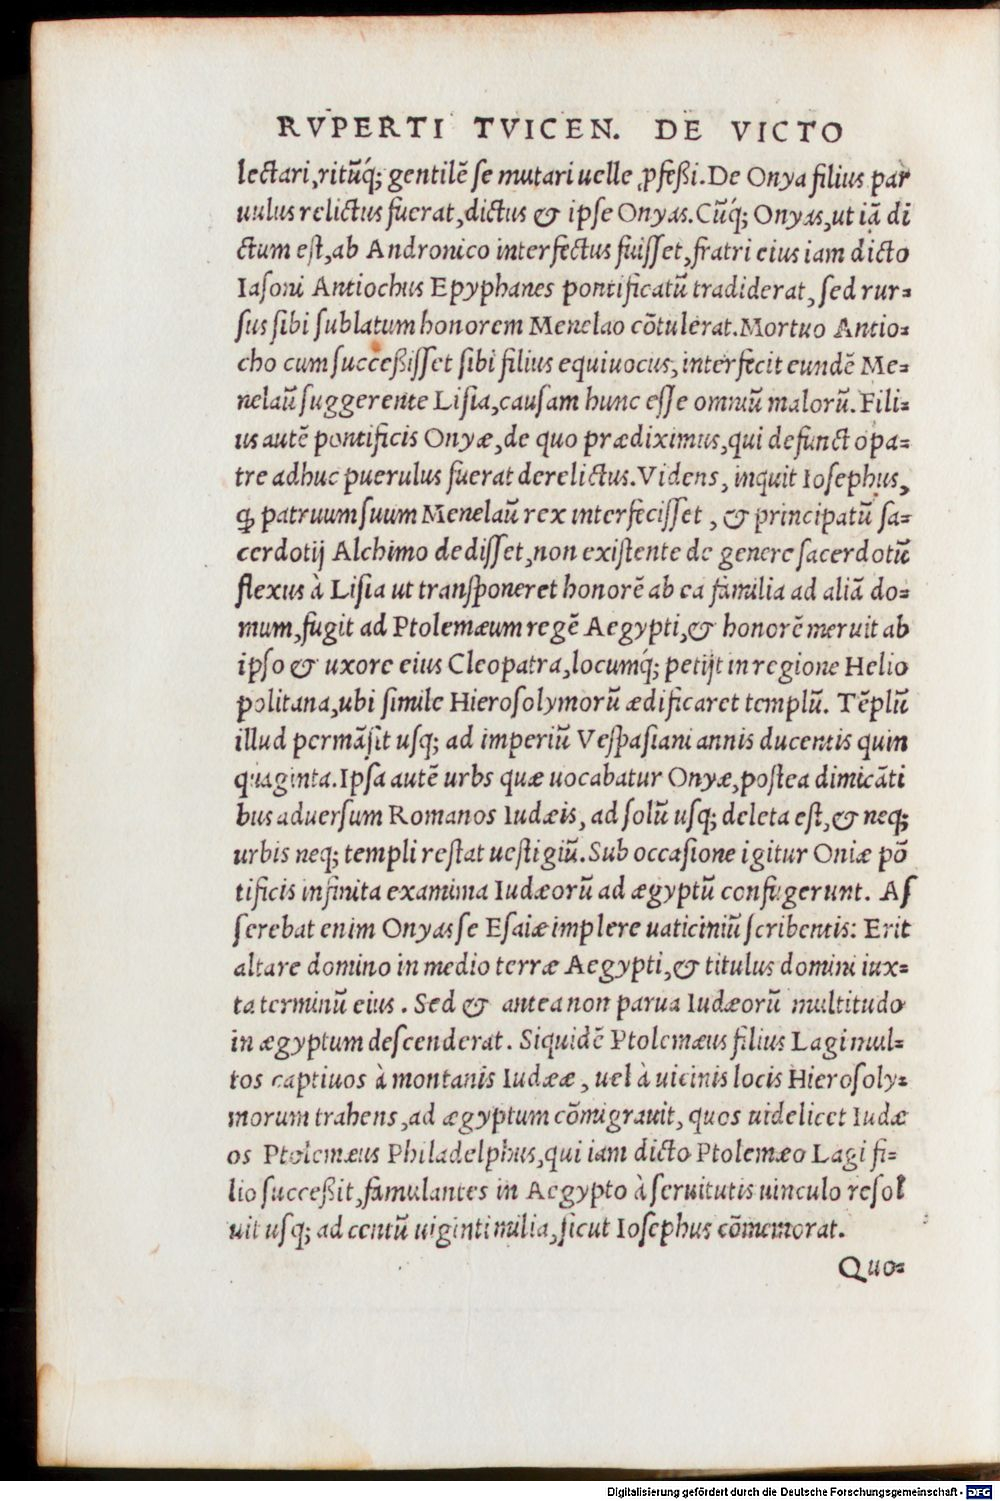 RVPERTI TVICEN. DE VICTO
lectari, ritũq́; gentilẽ se mutari uelle ꝓfeßi. De Onya filius par
uulus relictus fuerat, dictus & ipse Onyas. Cũq́; Onyas, ut iã di
ctum est, ab Andronico interfectus fuiſſet, fratri eius iam dicto
Iaſoni Antiochus Epyphanes pontificatũ tradiderat, ſed rur=
ſus ſibi ſublatum honorem Menelao cõtulerat. Mortuo Antio=
cho cum ſucceßiſſet ſibi filius equiuocus, interfecit eundẽ Me=
nelaũ ſuggerente Liſia, cauſam hunc eſſe omniũ malorũ. Fili=
us autẽ pontificis Onyæ, de quo prædiximus, qui defuncto pa=
tre adhuc puerulus fuerat derelictus. Videns, inquit Ioſephus,
ꝙ patruum ſuum Menelaũ rex interfeciſſet, & principatũ ſa=
cerdotij Alchimo dediſſet, non exiſtente de genere ſacerdotũ
flexus à Liſia ut tranſponeret honorẽ ab ea familia ad aliã do=
mum, fugit ad Ptolemæum regẽ Aegypti, & honorẽ meruit ab
ipſo & uxore eius Cleopatra, locumq́; petijt in regione Helio
politana, ubi ſimile Hieroſolymorũ ædificaret templũ. Tẽplũ
illud permãſit uſq; ad imperiũ Veſpaſiani annis ducentis quin
quaginta. Ipſa autẽ urbs quæ uocabatur Onyæ, poſtea dimicãti
bus aduerſum Romanos Iudæis, ad ſolũ uſq; deleta eſt, & neq;
urbis neq; templi reſtat ueſtigiũ. Sub occaſione igitur Oniæ põ
tificis infinita examina Iudæorũ ad ægyptũ confugerunt. Aſ
ſerebat enim Onyas ſe Eſaiæ implere uaticiniũ ſcribentis: Erit
altare domino in medio terræ Aegypti, & titulus domini iux=
ta terminũ eius. Sed & antea non parua Iudæorũ multitudo
in ægyptum deſcenderat. Siquidẽ Ptolemæus filius Lagi mul=
tos captiuos à montanis Iudææ, uel à uicinis locis Hieroſoly=
morum trahens, ad ægyptum cõmigrauit, quos uidelicet Iudæ
os Ptolemæus Philadelphus, qui iam dicto Ptolemæo Lagi fi=
lio ſucceßit, famulantes in Aegypto à ſeruitutis uinculo reſol
uit uſq; ad centũ uiginti milia, ſicut Ioſephus cõmemorat.
Quo=
Digitalisierung gefördert durch die Deutsche Forschungsgemeinschaft - DFG